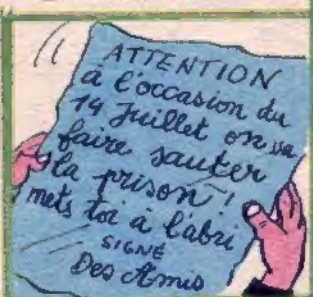 ATTENTION
à l'occasion du
14 Juillet on va
faire sauter
la prison !
mets toi à l'abri
SIGNÉ
Des Amis